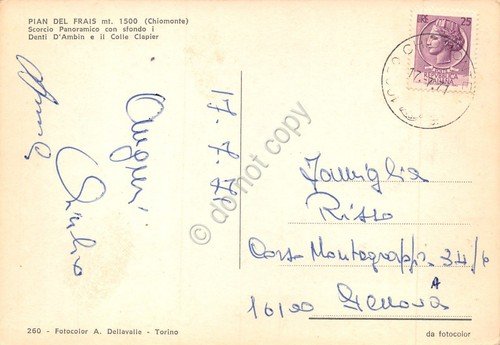 PIAN DEL FRAIS mt. 1500 (Chiomonte)
Scorcio Panoramico con sfondo i
Denti D'Ambin e il Colle Clapier
LIRE 25
17.7.71
Auguri
17-7-71
Famiglia
Risso
Corso Montegrappa 34/6
A
16100 Genova
260 - Fotocolor A. Dellavalle - Torino
da fotocolor
do not copy